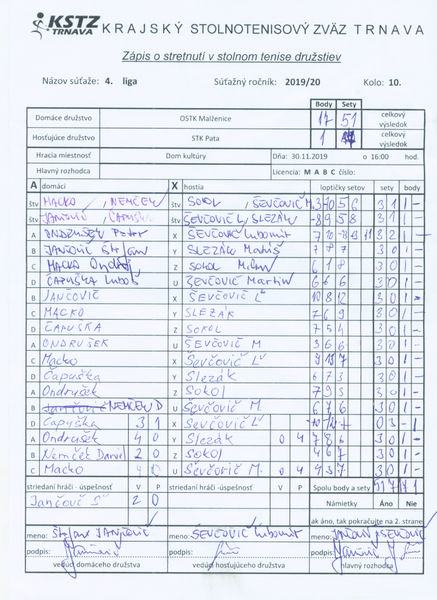 KSTZ TRNAVA KRAJSKÝ STOLNOTENISOVÝ ZVÄZ TRNAVA
Zápis o stretnutí v stolnom tenise družstiev
Názov súťaže: 4. liga Súťažný ročník: 2019/20 Kolo: 10.
Body Sety
Domáce družstvo OSTK Malženice 17 51 celkový výsledok
Hosťujúce družstvo STK Pata 1 celkový výsledok
Hracia miestnosť Dom kultúry Dňa: 30.11.2019 o 16:00 hod.
Hlavný rozhodca Licencia: M A B C číslo:
A domáci X hostia loptičky setov sety body
štv MACKO, NEMČEK štv SOKOL, ŠEVČOVIČ M 3 1 1 -
štv JANČOVIČ, ČAPUŠKA štv ŠEVČOVIČ Ľ, SLEZÁK -8 9 5 8 3 1 1 -
A ONDRUŠEK Peter X ŠEVČOVIČ Ľubomír 3 2 1 -
B JANČOVIČ Štefan Y SLEZÁK Matúš 7 8 7 3 0 1 -
C MACKO Ondrej Z SOKOL Milan 6 1 8 3 0 1 -
D ČAPUŠKA Ľuboš U ŠEVČOVIČ Martin 6 6 6 3 0 1 -
B JANČOVIČ X ŠEVČOVIČ Ľ 10 8 12 3 0 1 -
C MACKO Y SLEZÁK 7 6 9 3 0 1 -
D ČAPUŠKA Z SOKOL 7 5 4 3 0 1 -
A ONDRUŠEK U ŠEVČOVIČ M 3 6 6 3 0 1 -
C Macko X Ševčovič Ľ 3 0 1 -
D Čapuška Y Slezák 6 7 3 3 0 1 -
A Ondrušek Z Sokol 7 9 5 3 0 1 -
B NEMČEK D U Ševčovič M. 6 7 6 3 0 1 -
D Čapuška 3 1 X Ševčovič Ľ 0 3 - 1
A Ondrušek 4 0 Y Slezák 0 4 7 8 6 3 0 1 -
B Nemček Daniel 2 0 Z Sokol 4 6 7 3 0 1 -
C Macko 4 0 U Ševčovič M. 0 4 3 0 1 -
striedaní hráči -úspešnosť V P striedaní hráči -úspešnosť V P Spolu body a sety 51 7 17 1
Jančovič Š 2 0 Námietky Áno Nie
ak áno, tak pokračujte na 2. strane
meno: Štefan JANČOVIČ meno: ŠEVČOVIČ Ľubomír meno:
podpis: podpis: podpis:
vedúci domáceho družstva vedúci hosťujúceho družstva hlavný rozhodca